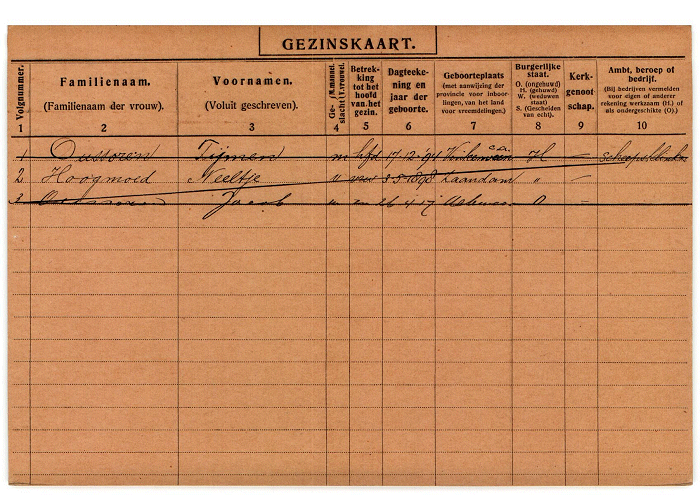 GEZINSKAART.
Volgnummer.
Familienaam.
(Familienaam der vrouw).
Voornamen.
(Voluit geschreven).
Ge- M.mannel.
slacht V.vrouwel.
Betrek-
king
tot het
hoofd
van het
gezin.
Dagteeke-
ning en
jaar der
geboorte.
Geboorteplaats
(met aanwijzing der
provincie voor inboor-
lingen, van het land
voor vreemdelingen.)
Burgerlijke
staat.
O. (ongehuwd)
H. (gehuwd)
W. (weduwen
staat)
S. (Gescheiden
van echt).
Kerk-
genoot
schap.
Ambt, beroep of
bedrijf.
(Bij bedrijven vermelden
voor eigen of anderer
rekening werkzaam (H.) of
als ondergeschikte (O.)
1 2 3 4 5 6 7 8 9 10
1 Oustoren Tijmen m hfd 17-12-'91 H —
2 Hoogmoed Neeltje v 3-5-1898 Zaandam " —
3 Jacob m 26-4-17 O —